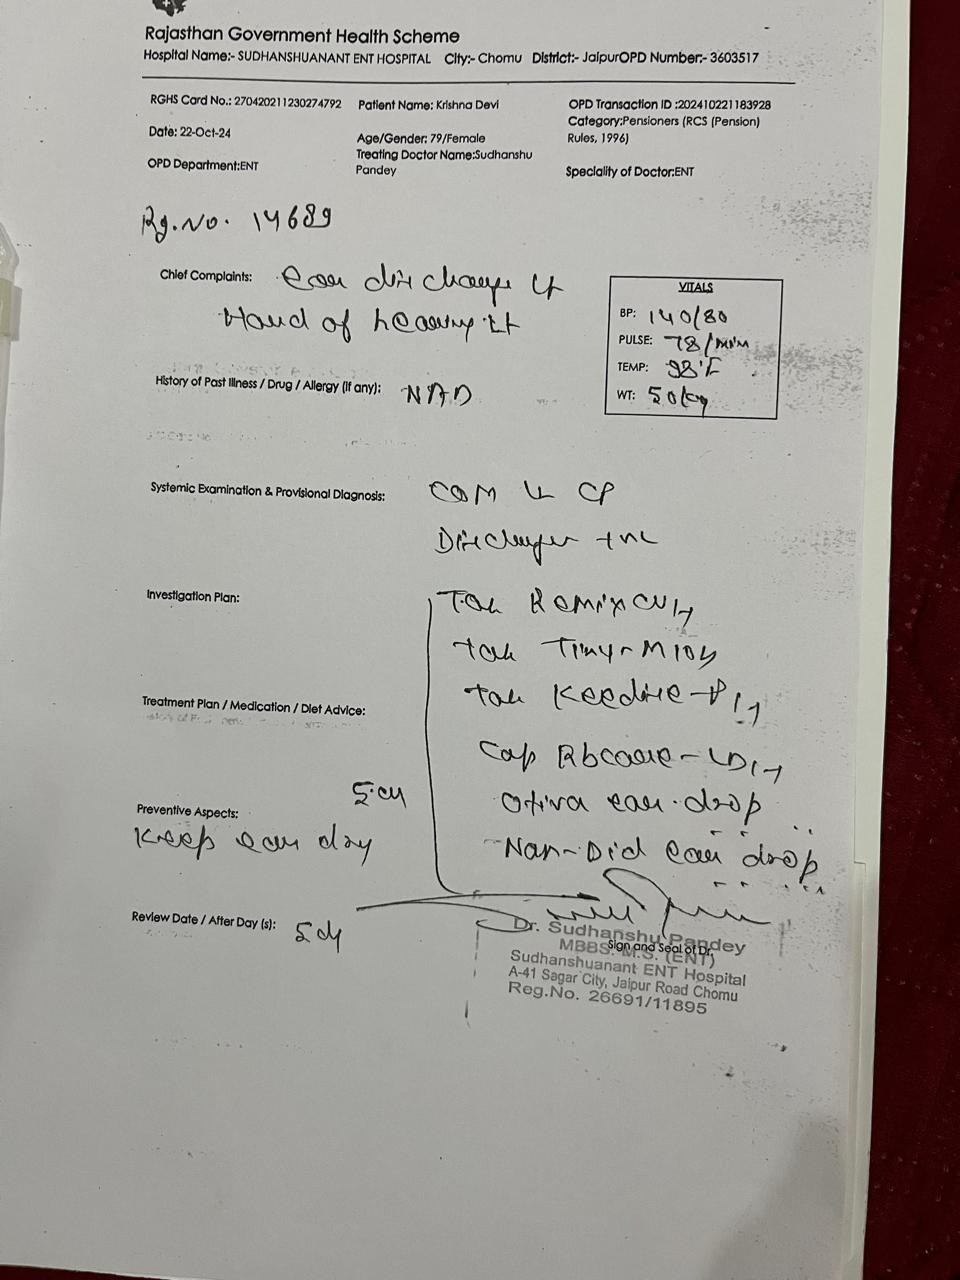 Rajasthan Government Health Scheme
Hospital Name:- SUDHANSHUANANT ENT HOSPITAL City:- Chomu District:- JaipurOPD Number:- 3603517
RGHS Card No.: 270420211230274792 Patient Name: Krishna Devi OPD Transaction ID :202410221183928
Category:Pensioners (RCS (Pension)
Rules, 1996)
Date: 22-Oct-24 Age/Gender: 79/Female
Treating Doctor Name:Sudhanshu
Pandey
OPD Department:ENT Speciality of Doctor:ENT
Rg.No. 14689
Chief Complaints: Ear discharge Lt
Hard of hearing Lt
VITALS
BP: 140/80
PULSE: 78/min
TEMP: 98°F
WT: 50kg
History of Past Illness / Drug / Allergy (if any): NAD
Systemic Examination & Provisional Diagnosis: COM Lt CP
Discharge +ve
Investigation Plan:
Tab Remix CV
Tab
Tab
Treatment Plan / Medication / Diet Advice:
Cap Rbcare-LD
ear drop
ear drop
Preventive Aspects:
Keep ear dry
Review Date / After Day (s): 5 d
Dr. Sudhanshu Pandey
MBBS. M.S. (ENT)
Sign and Seal of Dr.
Sudhanshuanant ENT Hospital
A-41 Sagar City, Jaipur Road Chomu
Reg.No. 26691/11895